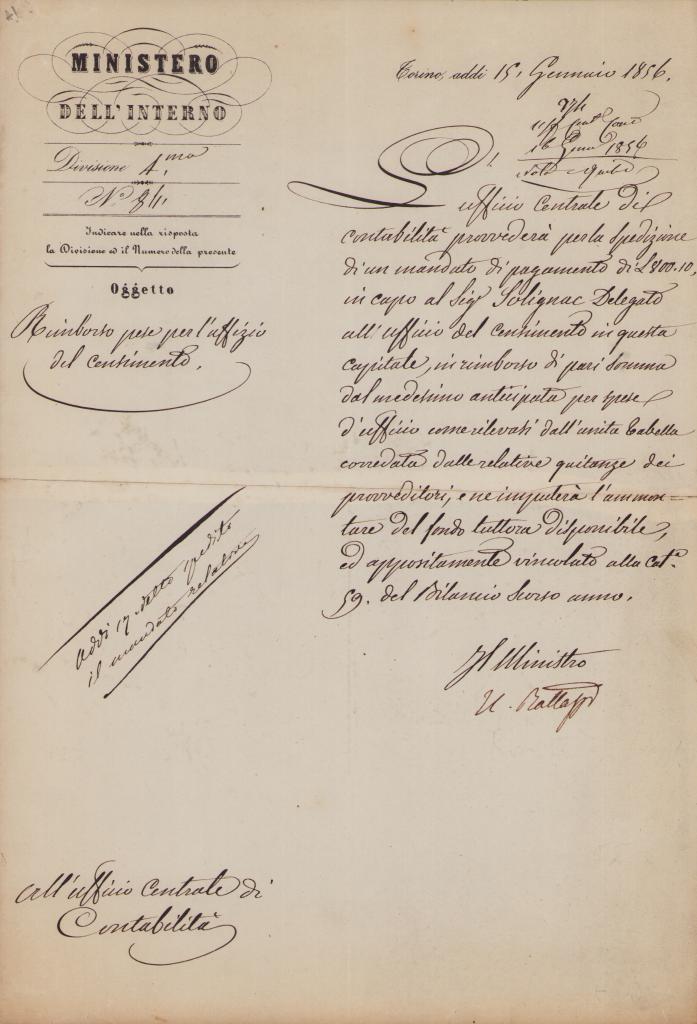 MINISTERO
DELL'INTERNO
Divisione 4.ma
N.o 84.
Indicare nella risposta
la Divisione ed il Numero della presente
Oggetto
Rimborso spese per l'uffizio
del censimento.
Torino, addì 15. Gennaio 1856.
16 Genn. 1856
L'ufficio Centrale di
contabilità provvederà per la spedizione
di un mandato di pagamento di L 800.10,
in capo al Sig.r Solignac Delegato
all'ufficio del censimento in questa
capitale, in rimborso di pari somma
dal medesimo anticipata per spese
d'ufficio come rilevasi dall'unita Tabella
corredata dalle relative quitanze dei
provveditori, e ne imputerà l'ammon=
tare del fondo tuttora disponibile,
ed appositamente vincolato alla Cat.a
59. del Bilancio scorso anno.
Il Ministro
U. Rattazzi
Addì 17 detto spedito
il mandato relativo
All'ufficio Centrale di
Contabilità